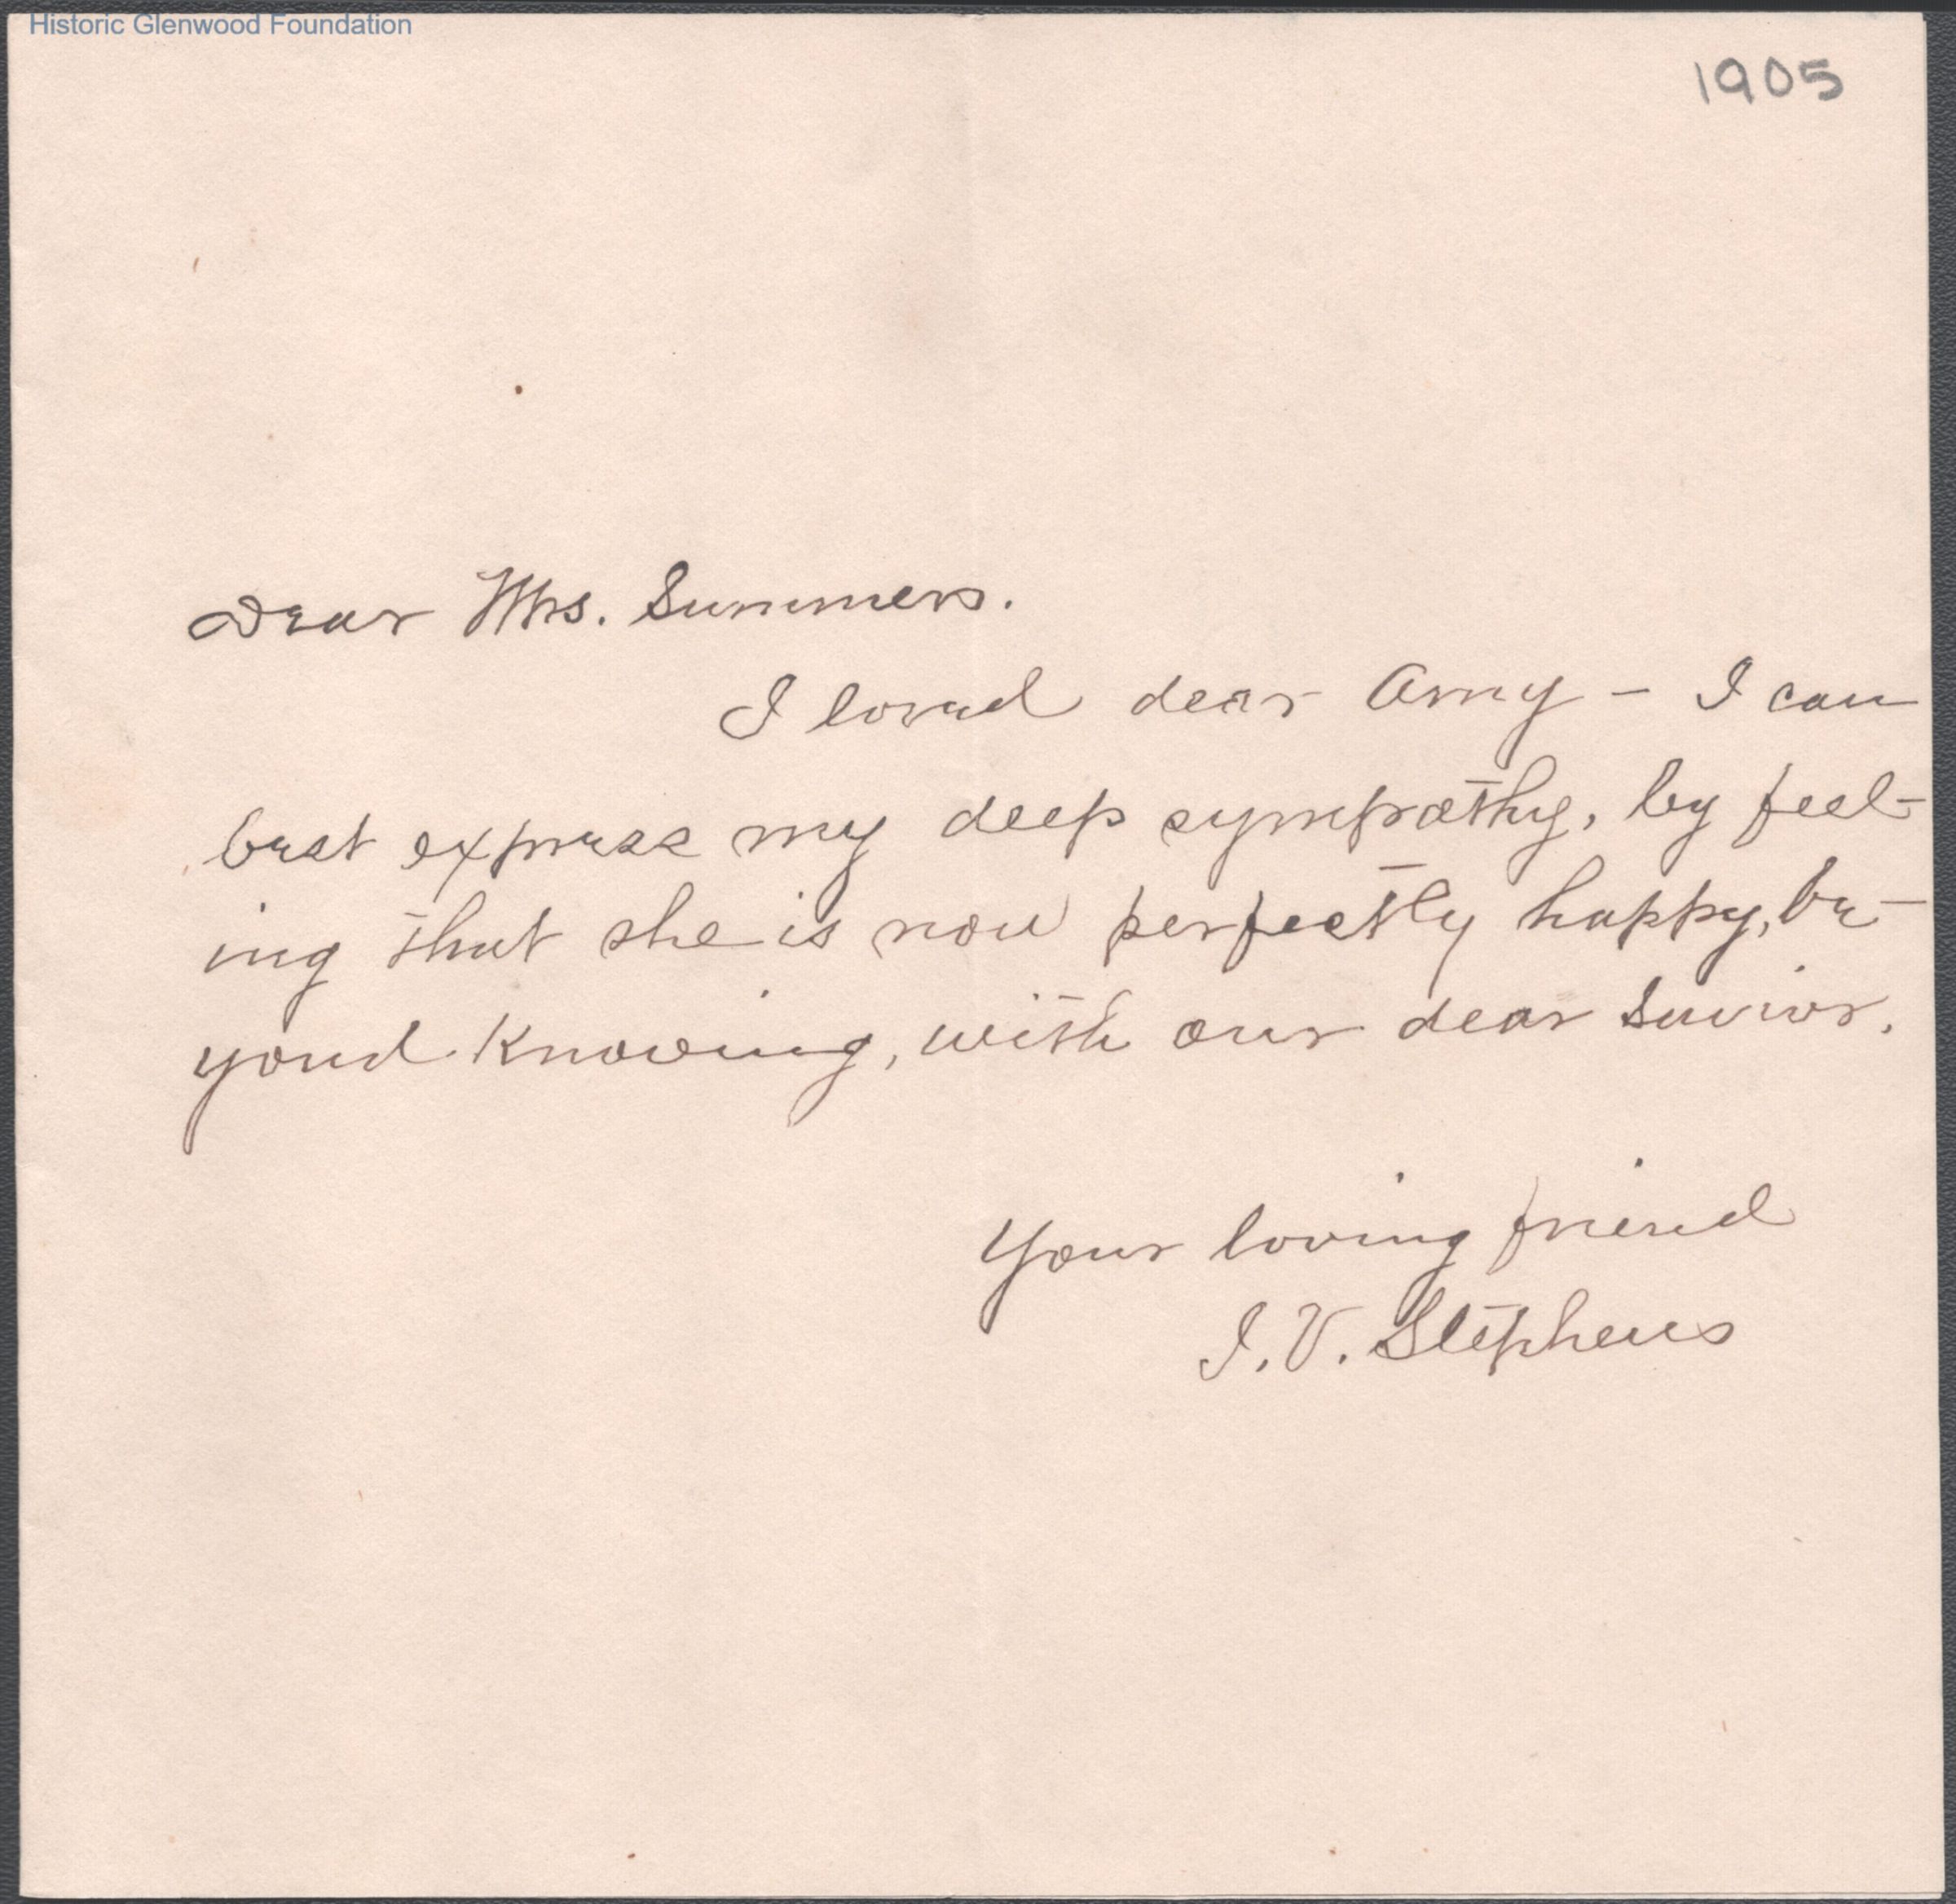 Historic Glenwood Foundation
1905
Dear Mrs. Summers.
I loved dear Amy - I can
best express my deep sympathy, by feel-
ing that she is now perfectly happy, be-
yond knowing, with our dear Savior.
Your loving friend
I. V. Stephens